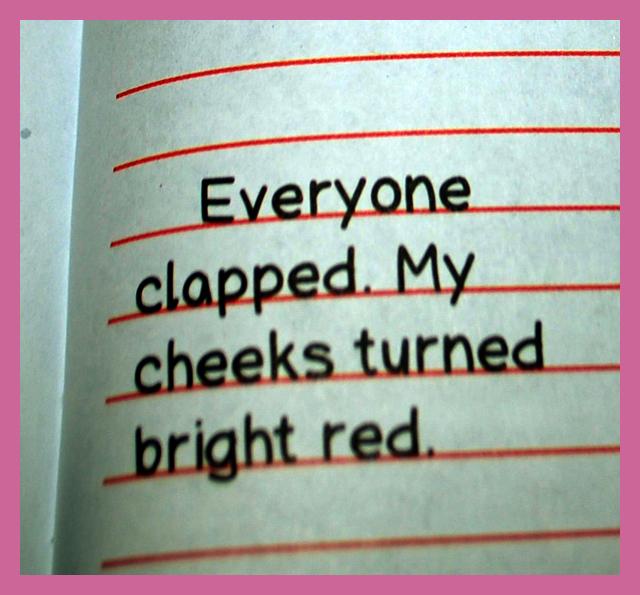 Everyone
clapped. My
cheeks turned
bright red.